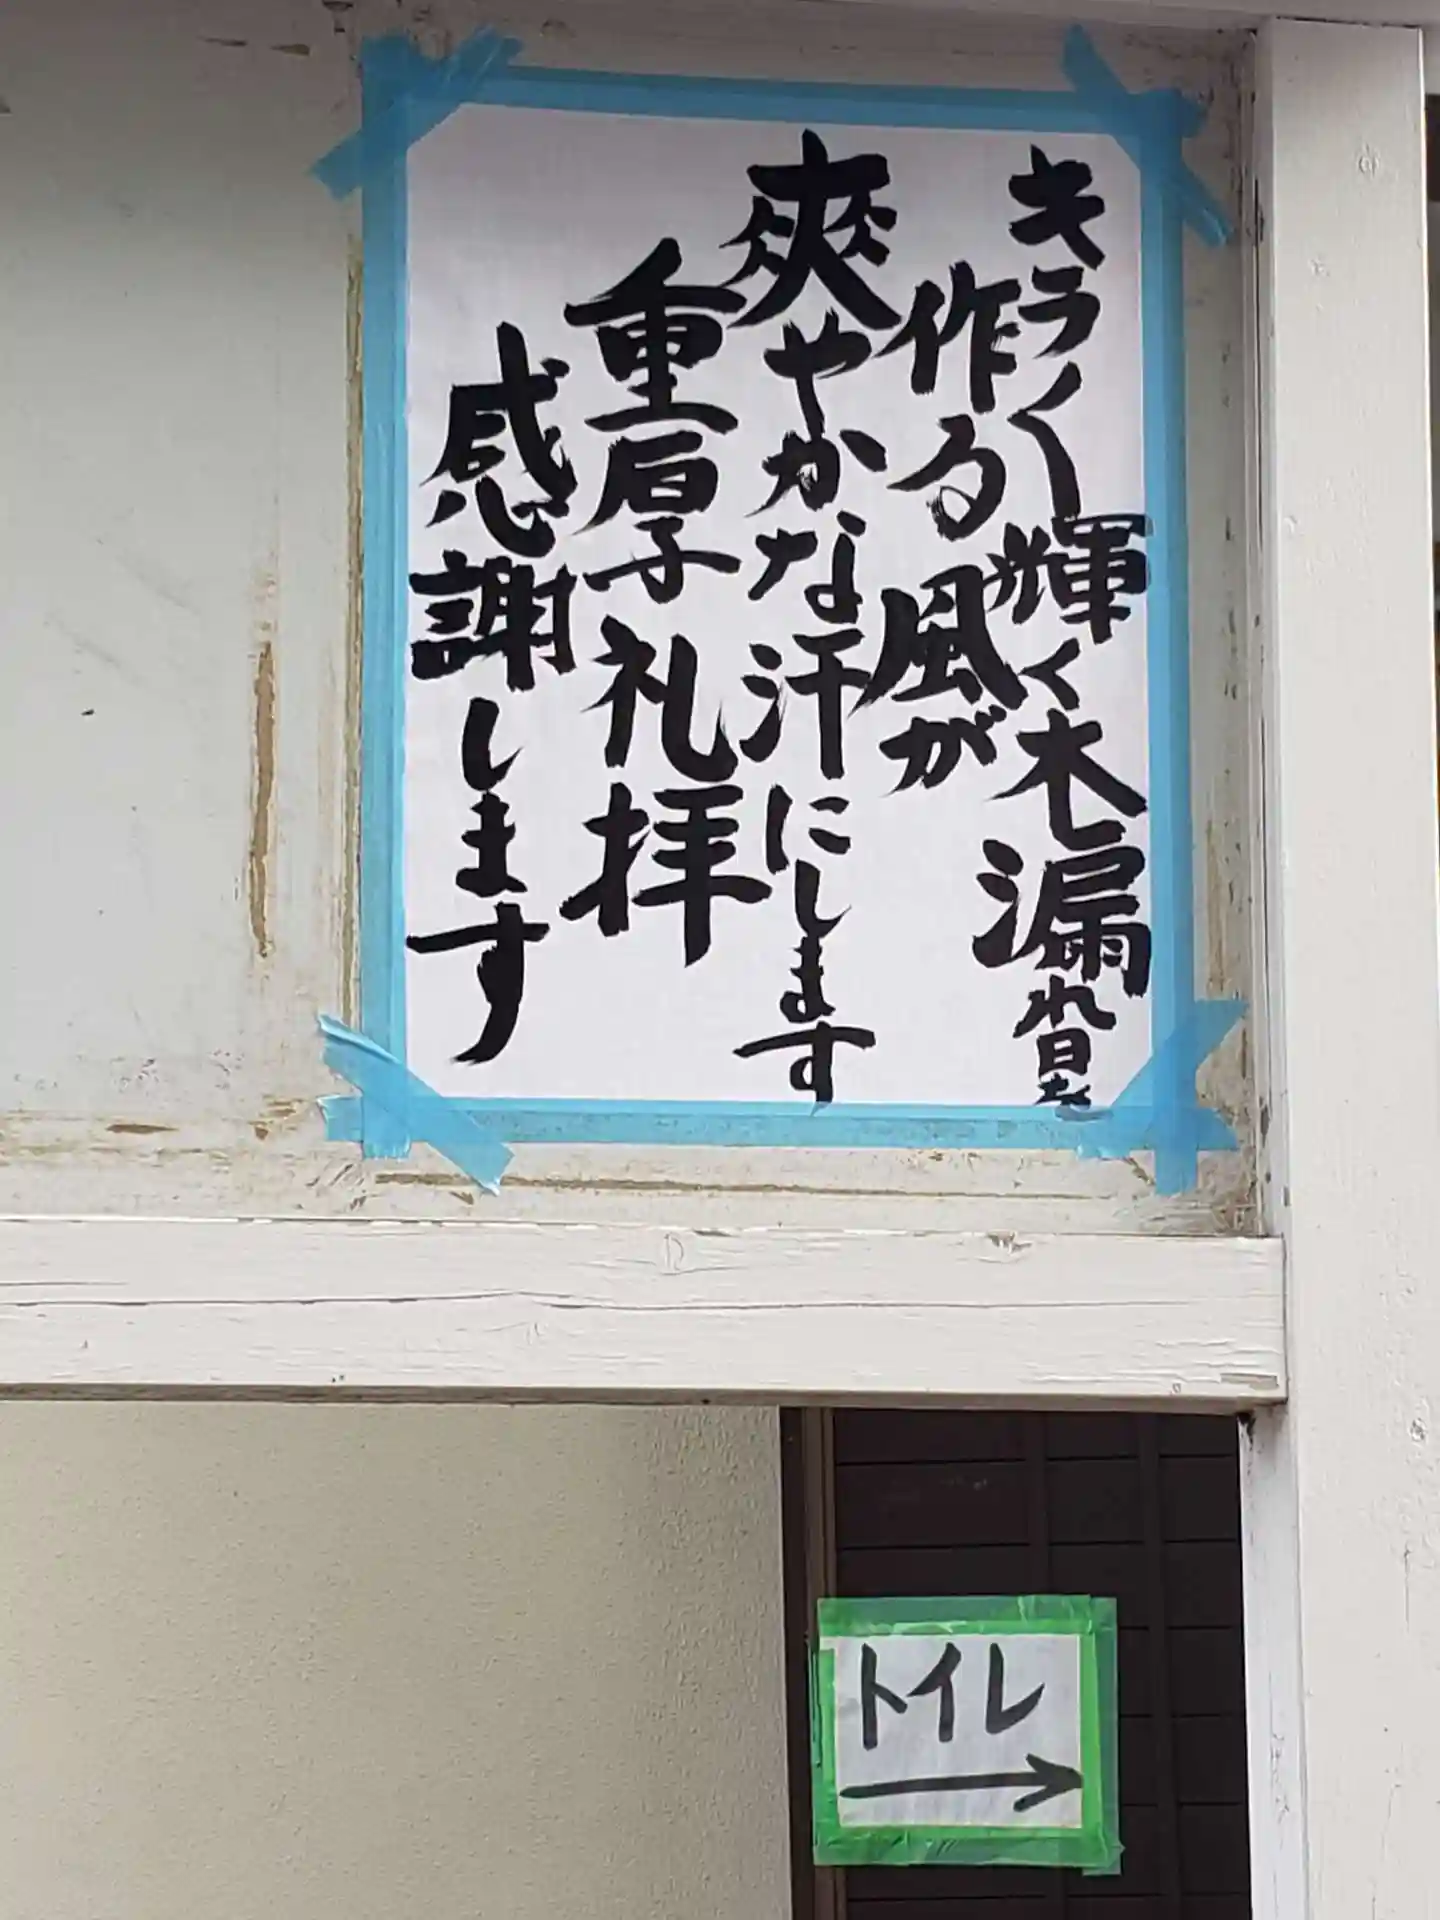 キラ〱輝く木漏れ日を
作る風が
爽やかな汗にします
重厚礼拝
感謝します
トイレ
→